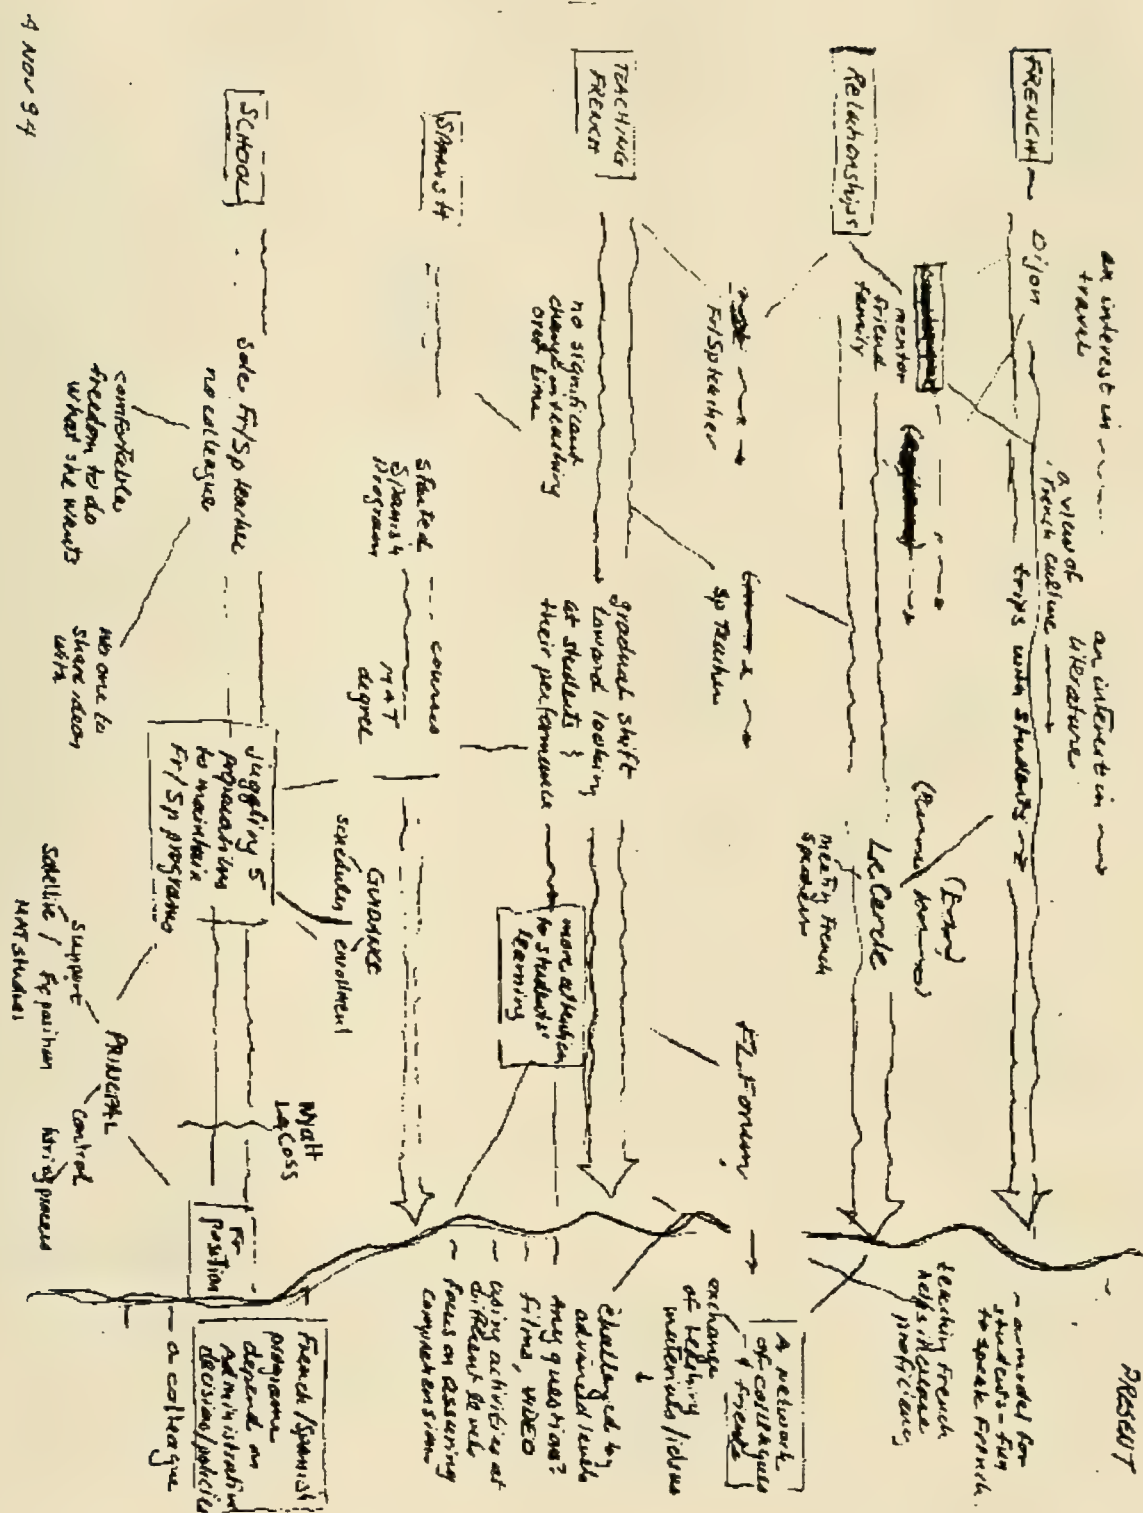 PRESENT
an interest in
travel
an interest in
literature
a view of
French culture
FRENCH
Dijon
trips with students
- a model for
students - fun
to speak French.
teaching French
helps increase
proficiency
Relationships
mentor
friend
family
Le Cercle
meeting French
speakers
A network
of colleagues
& friends
exchange
of teaching
materials/ideas
Fr/Sp teacher
Sp teacher
FL Forum
TEACHING
FRENCH
no significant
change in teaching
over time
gradual shift
toward looking
at students &
their performance
more attention
to students'
learning
challenged by
advanced levels
Any questions?
films, VIDEO
using activities at
different levels
focus on assuring
comprehension
SPANISH
started
Spanish
Program
courses
MAT
degree
GUIDANCE
schedules/enrollment
SCHOOL
sole Fr/Sp teacher
no colleague
comfortable
freedom to do
what she wants
no one to
share ideas
with
juggling 5
preparations
to maintain
Fr/Sp programs
PRINCIPAL
support
satellite/ Fr position
MAT studies
control
hiring process
Myatt
LaCoss
Fr
position
French/Spanish
programs
depend on
Administrative
decisions/policies
- a colleague
4 NOV 94